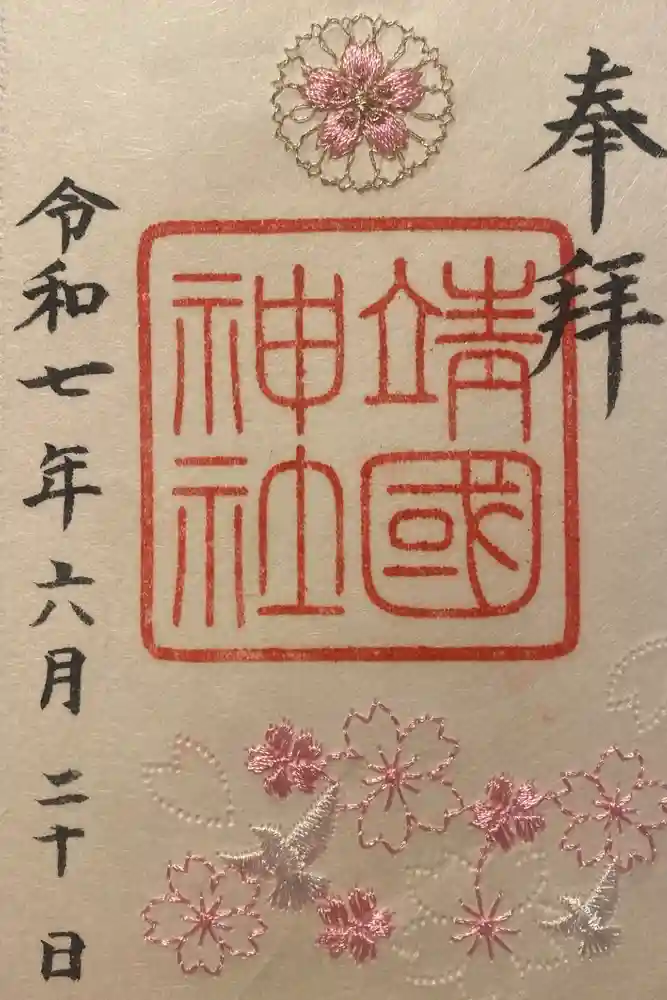 奉拝
靖國
神社
令和七年六月二十日